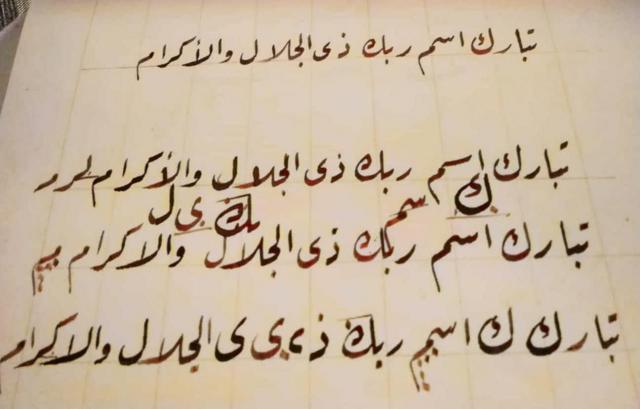 تبارك اسم ربك ذى الجلال والأكرام
تبارك اسم ربك ذى الجلال والأكرام
ك اسم بك ى ل
تبارك اسم ربك ذى الجلال والاكرام
تبارك ك اسم ربك ذ ى ى الجلال والاكرام